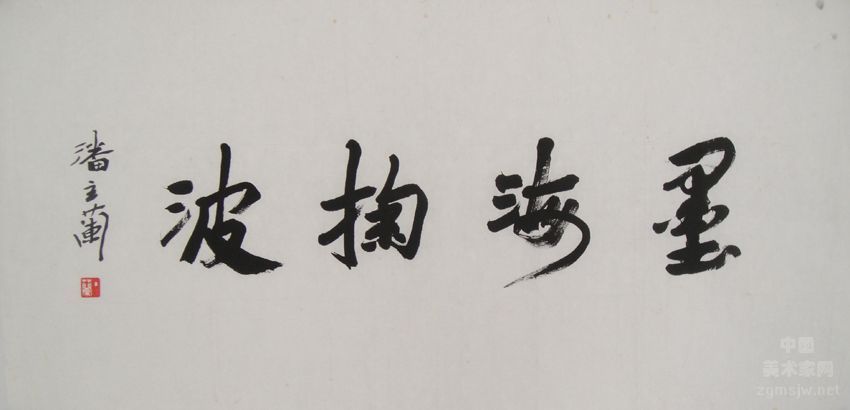 墨海掬波
潘主蘭
中国
美术家网
zgmsjw.net